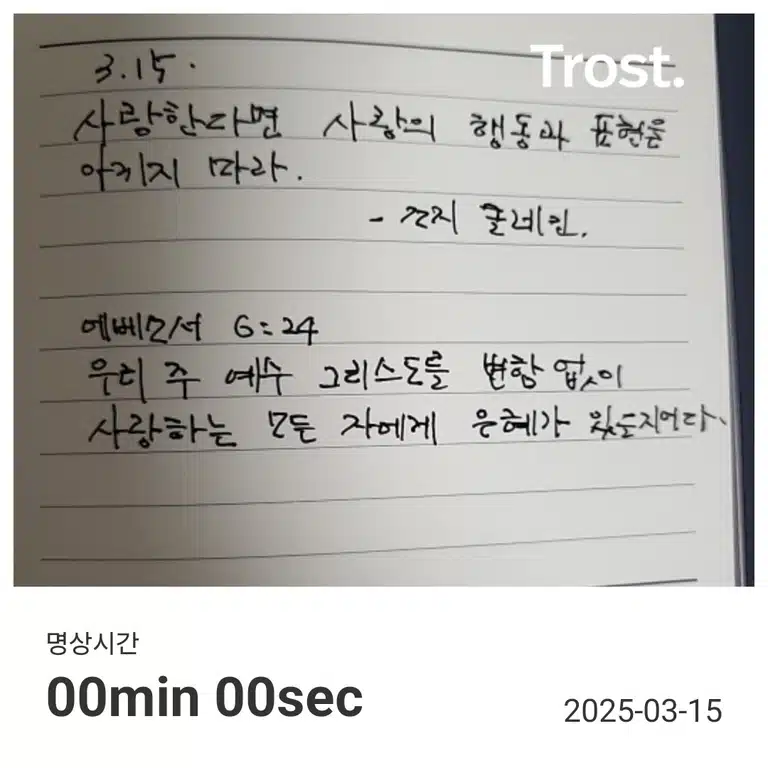 Trost.
3.15.
사랑한다면 사랑의 행동과 표현을
아끼지 마라.
- 건지 클레인.
에베소서 6:24
우리 주 예수 그리스도를 변함 없이
사랑하는 모든 자에게 은혜가 있을지어다.
명상시간
00min 00sec
2025-03-15